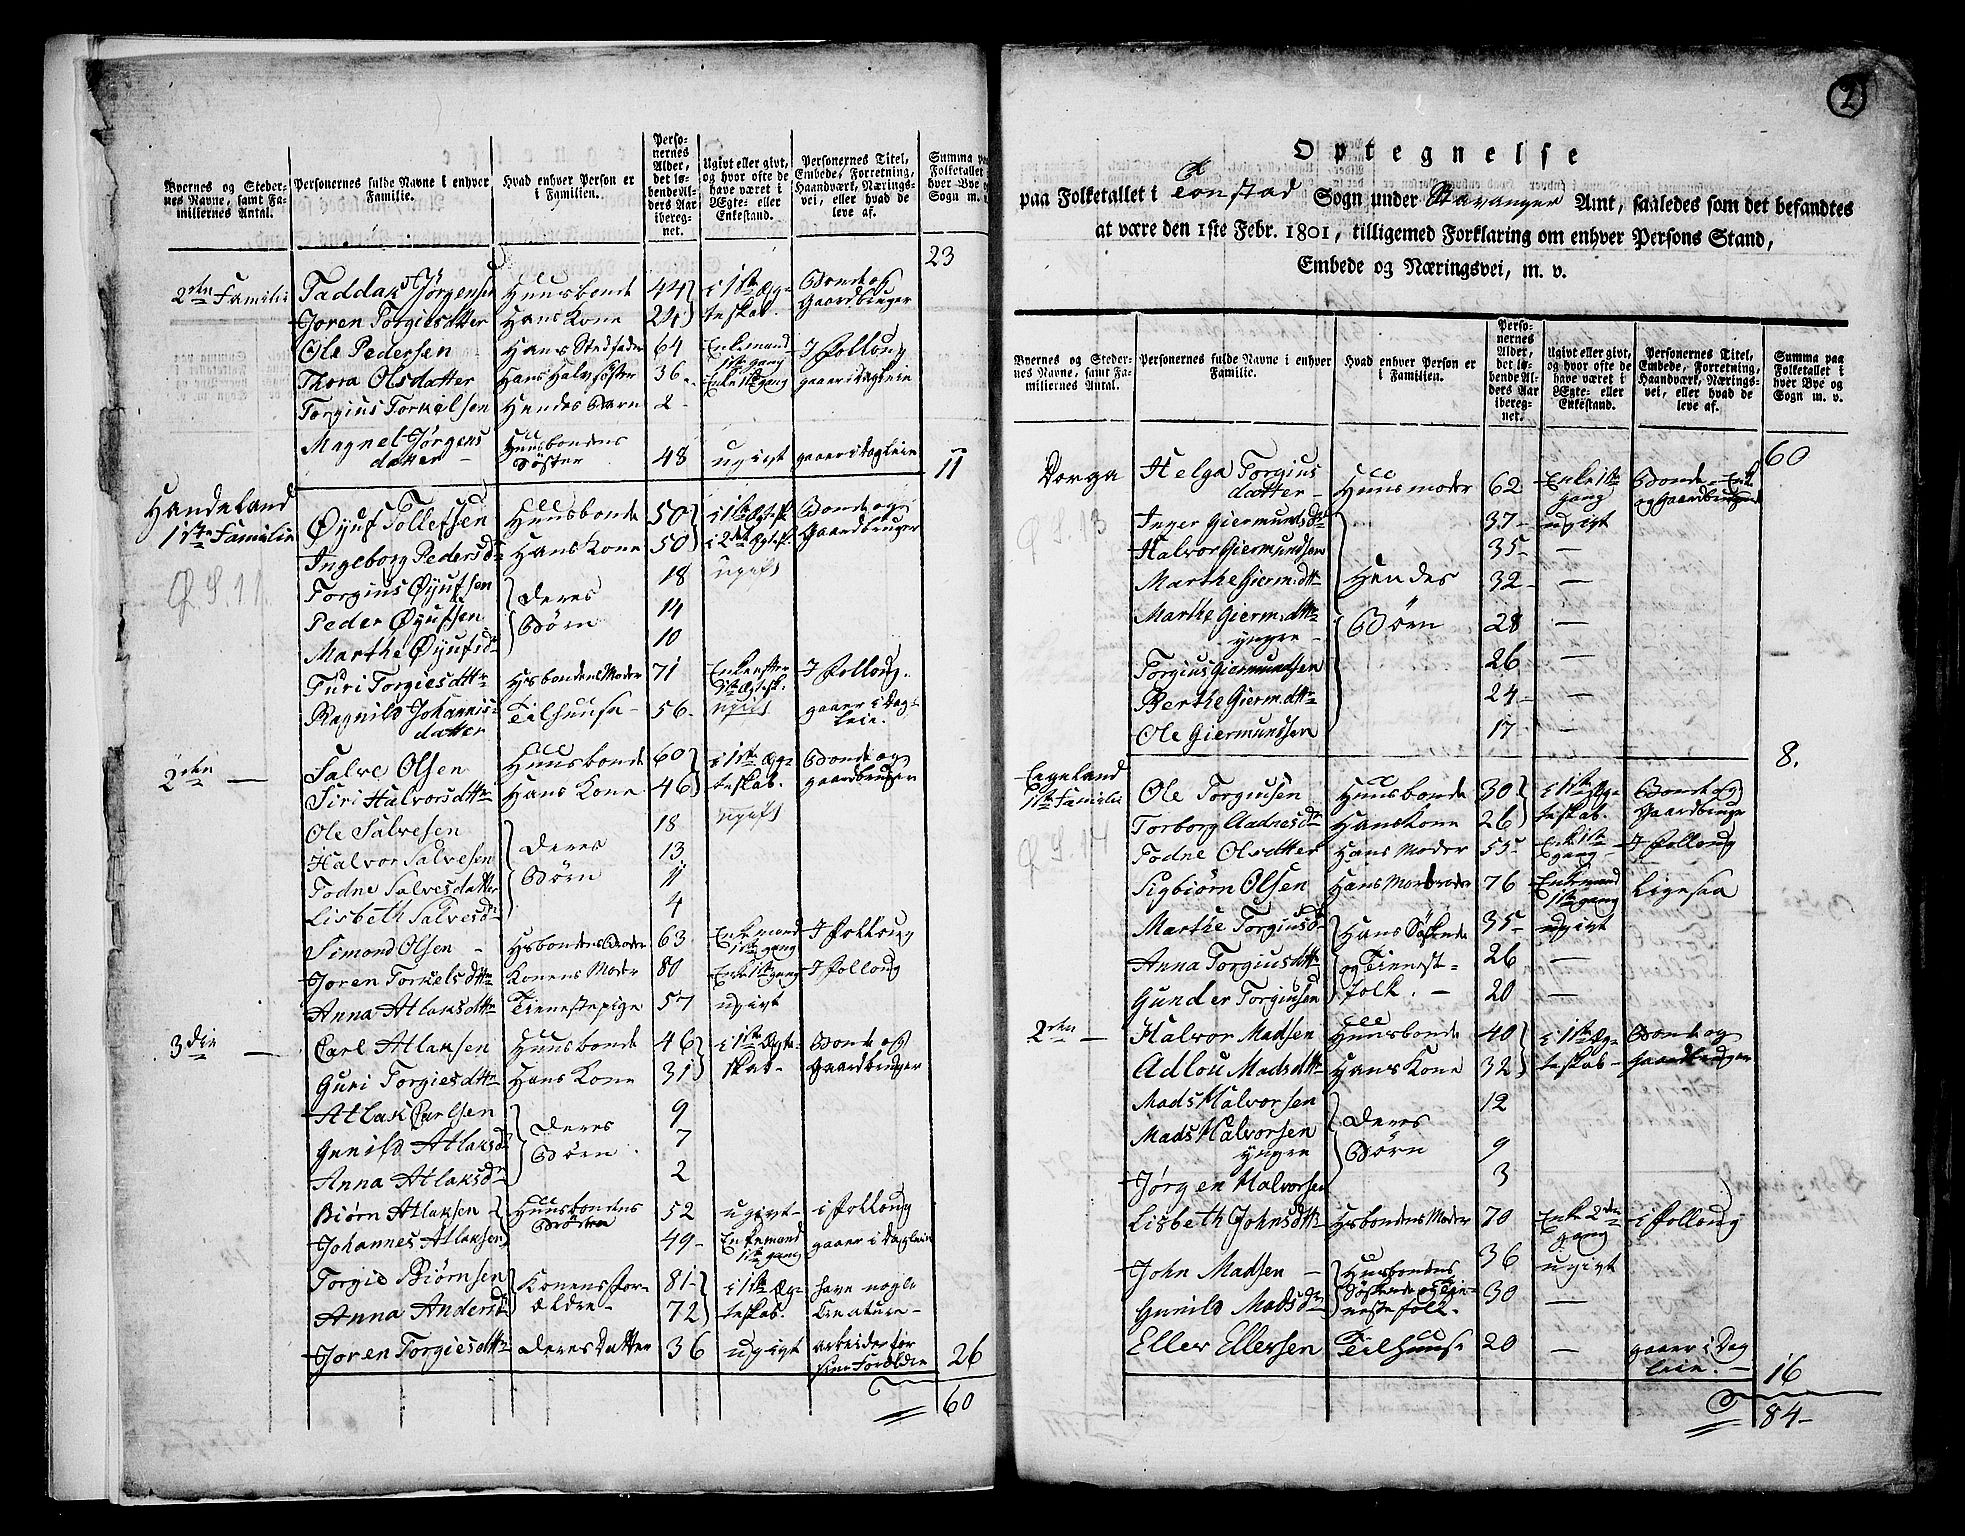 Byernes og Steder-
nes Navne, samt Fa-
miliernes Antal.
Personernes fulde Navne i enhver
Familie.
Hvad enhver Person er
i Familien.
Perso-
nernes
Alder,
det lø-
bende Al-
ders Aar
ibereg-
net.
Ugivt eller givt,
og hvor ofte de
have været i
Ægte- eller
Enkestand.
Personernes Titel,
Embede, Forretning,
Haandværk, Nærings-
vei, eller hvad de
leve af.
Summa paa
Folketallet i
hver Bye og
Sogn m. v.
23
2den Familie Taddak Jørgensen Huusbonde 44 i 1ste Æg- Bonde og
teskab. Gaardbruger
Joren Torgiesdatter Hans Kone 24
Ole Pedersen Hans Stedfader 64 Enkemand 1ste gang I folloug
Thora Olsdatter Hans Halvsøster 36 Enke 1ste gang gaaer i Dagleie
Torgius Torkelsen Hendes Barn 2
Magnel Jørgens
datter Huusbondens
Søster 48 ugivt gaaer i Dagleie 11
Handeland
1ste Familie Øyuf Tollefsen Huusbonde 50 i 1ste Ægtesk. Bonde og
Ingeborg Pedersdr Hans Kone 50 i 2det Ægtesk. Gaardbruger
Torgius Øyufsen Deres 18 ugift
Peder Øyufsen Børn 14
Marthe Øyufsdr 10
Φ. S. 11
Turi Torgiesdttr Hsbondens Moder 71 Enke efter
1ste Ægtesk. I folloug.
Ragnild Johannis-
datter Tilhuuse 56 ugift gaaer i Dag-
leie.
2den — Salve Olsen Huusbonde 60 i 1ste Æg- Bonde og
Siri Halvorsdttr Hans Kone 46 teskab. gaardbruger
Ole Salvesen Deres 18 ugift
Halvor Salvesen 13
Todne Salvesdatter Børn 11
Lisbeth Salvesdr 4
Simond Olsen Hsbondens Broder 63 Enkemand
1ste gang I folloug
Joren Torkelsdttr Konens Moder 80 Enke 1ste gang I folloug
Anna Atlaksdttr Tienestepige 57 ugivt
3die — Carl Atlaksen Huusbonde 46 i 1ste Ægte- Bonde og
Guri Torgiesdttr Hans Kone 31 skab Gaardbruger
Atlak Carlsen Deres 9
Gunild Atlaksdr Børn 7
Anna Atlaksdr 2
Biørn Atlaksen Huusbondens 52 ugivt i folloug
Johannes Atlaksen Brødre 49 Enkemand
1ste gang gaaer i Dagleie
Torgie Biørnsen Konens For- 81 i 1ste Æg- have nogle
Anna Andersdr ældre 72 teskab. Creature
Joren Torgiesdttr Deres Datter 36 ugivt arbeider for
sine Forældre 26
60
2
Optegnelse
paa Folketallet i Tonstad Sogn under Stavanger Amt, saaledes som det befandtes
at være den 1ste Febr. 1801, tilligemed Forklaring om enhver Persons Stand,
Embede og Næringsvei, m. v.
Byernes og Steder-
nes Navne, samt Fa-
miliernes Antal.
Personernes fulde Navne i enhver
Familie.
Hvad enhver Person er
i Familien.
Perso-
nernes
Alder,
det lø-
bende Al-
ders Aar
ibereg-
net.
Ugivt eller givt,
og hvor ofte de
have været i
Ægte- eller
Enkestand.
Personernes Titel,
Embede, Forretning,
Haandværk, Nærings-
vei, eller hvad de
leve af.
Summa paa
Folketallet i
hver Bye og
Sogn m. v.
60
Dorga Helga Torgius
datter Huusmoder 62 Enke 1ste
gang Bonde-Enke
og Gaardbruger
Φ S. 13
Inger Giermundsdr 37 ugivt
Halvor Giermundsen 35 —
Marthe Gierm.dttr Hendes 32 —
Marthe Gierm.dttr
yngre Børn 28 —
Torgius Giermundsen 26 —
Berthe Gierm.dttr 24 —
Ole Giermundsen 17
8.
Eigeland
1ste Familie Ole Torgiusen Huusbonde 30 i 1ste Æg- Bonde og
Torborg Aadnesdr Hans Kone 26 teskab. Gaardbruger
Φ S. 14
Todne Olsdatter Hans Moder 55 Enke 1ste
gang I folloug
Sigbiørn Olsen Hans Morbroder 76 Enkemand
1ste gang Ligesaa
Marthe Torgiusdr Hans Søskende 35 ugivt
Anna Torgiusdttr og Tienest- 26 —
Gunder Torgiusen folk. 20 —
2den — Halvor Madsen Huusbonde 40 i 1ste Æg- Bonde og
Adlou Madsdttr Hans Kone 32 teskab Gaardbruger
Mads Halvorsen Deres 12
Mads Halvorsen
yngre Børn 9
Jørgen Halvorsen 3
Lisbeth Johnsdttr Hsbondens Moder 70 Enke 2den
gang i folloug
John Madsen Huusbondens 36 ugivt
Gunild Madsdr Søskende og Tie-
nestefolk. 30 —
Eller Ellersen Tilhuuse 20 — gaaer i Dag
leie. 16
84